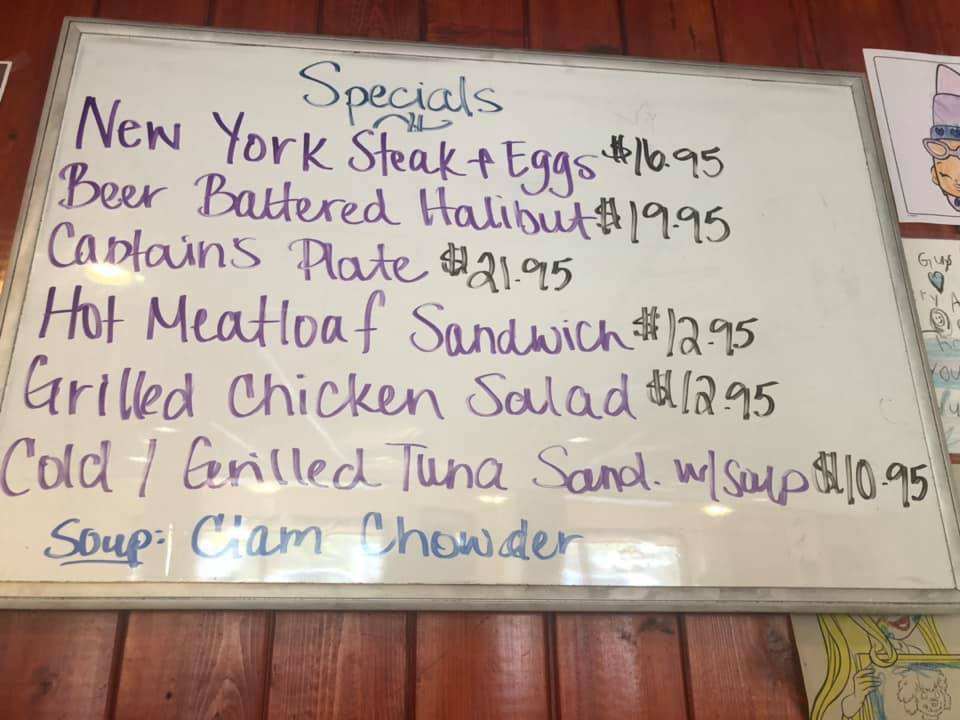 Specials
New York Steak + Eggs $16.95
Beer Battered Halibut $19.95
Captains Plate $21.95
Hot Meatloaf Sandwich $12.95
Grilled Chicken Salad $12.95
Cold / Grilled Tuna Sand. w/soup $10.95
Soup: Clam Chowder
Guys